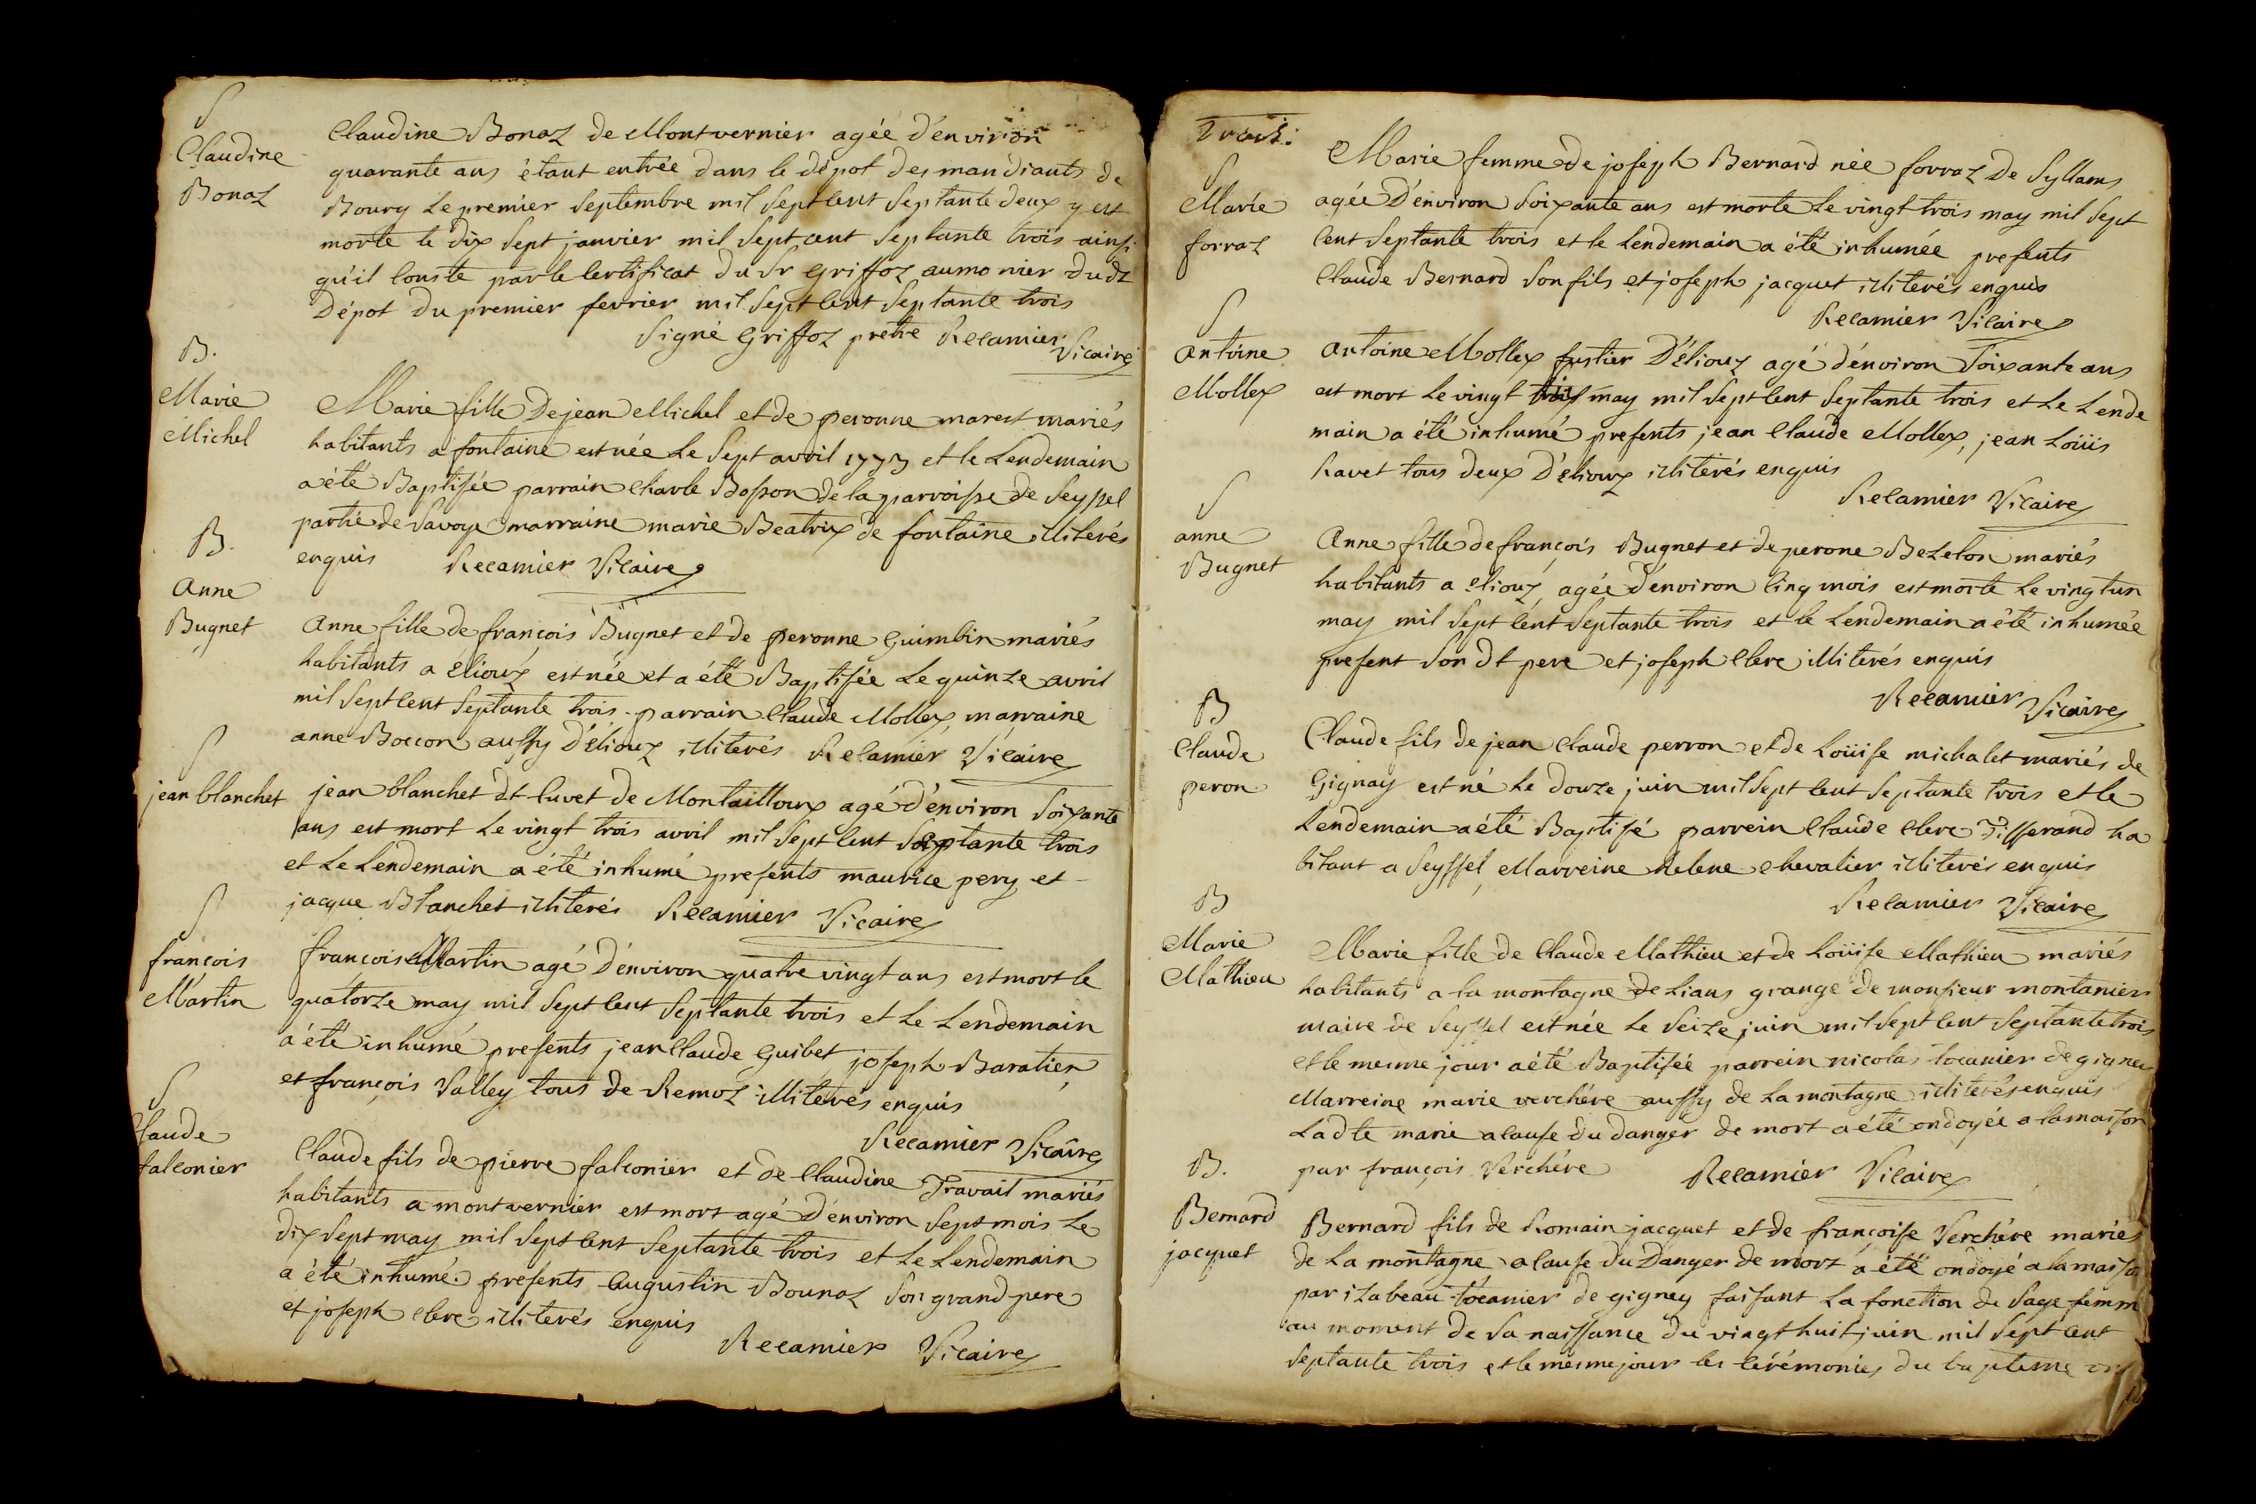 S
Claudine
Bonaz
Claudine Bonaz de Montvernier agée d'environ
quarante ans étant entrée dans le dépot des mandiants de
Bourg le premier Septembre mil Sept cent Septante deux y est
morte le dix Sept janvier mil Sept cent Septante trois ainsi
qu'il conste par le certificat du Sr Griffoz aumonier dudt
Dépot du premier fevrier mil Sept cent Septante trois
Signé Griffoz pretre Recamier
Vicaire
B.
Marie
Michel
Marie fille De jean Michel et de peronne marest mariés
habitants a fontaine est née Le Sept avril 1773 et le Lendemain
a été Baptisée parrain charle Bosson de la parroisse de Seyssel
partie de Savoye marraine marie Beatrix de fontaine illiterés
enquis Recamier Vicaire
B.
Anne
Bugnet
Anne fille de françois Bugnet et de peronne Guimbin mariés
habitants a Elioux est née et a été Baptisée Le quinze avril
mil Sept cent Septante trois parrain Claude Mollex, marraine
anne Boccon aussy D'élioux illiterés Recamier Vicaire
S
jean blanchet
jean blanchet dt Cuvet de Montailloux agé d'environ Soixante
ans est mort Le vingt trois avril mil Sept cent Septante trois
et Le Lendemain a été inhumé presents maurice pery et
jacque Blanchet illiterés Recamier Vicaire
S
françois
Martin
françois Martin agé D'environ quatre vingt ans est mort le
quatorze may mil Sept cent Septante trois et Le Lendemain
a été inhumé presents jean Claude Guibet, joseph Baratier,
et françois Valley tous de Remoz illiterés enquis
Recamier Vicaire
S
Claude
falconier
Claude fils de pierre falconier et de Claudine Travail mariés
habitants a montvernier est mort agé D'environ Sept mois Le
dix Sept may mil Sept cent Septante trois et Le Lendemain
a été inhumé presents augustin Bounaz Son grand pere
et joseph clerc illiterés enquis
Recamier Vicaire
Trois:
S
Marie
forraz
Marie femme de joseph Bernard née forraz De Syllans
agée D'environ Soixante ans est morte Le vingt trois may mil Sept
cent Septante trois et le Lendemain a été inhumée presents
Claude Bernard Son fils et joseph jacquet illiterés enquis
Recamier Vicaire
S
Antoine
Mollex
Antoine Mollex fustier D'élioux agé d'environ Soixante ans
est mort Le vingt trois may mil Sept cent Septante trois et Le Lende
main a été inhumé presents jean Claude Mollex, jean Loüis
Ravet tous deux D'élioux illiterés enquis
Recamier Vicaire
S
anne
Bugnet
Anne fille de françois Bugnet et de perone Bezelon mariés
habitants a elioux agée d'environ cinq mois est morte Le vingt un
may mil Sept cent Septante trois et le Lendemain a été inhumée
present Son dt pere et joseph clerc illiterés enquis
Recamier Vicaire
B
Claude
peron
Claude fils de jean Claude perron et de Loüise michalet mariés de
Gignay est né Le douze juin mil Sept cent Septante trois et le
Lendemain a été Baptisé parrein Claude clerc Tisserand ha
bitant a Seyssel, Marreine helene chevalier illiterés enquis
Recamier Vicaire
B
Marie
Mathieu
Marie fille de Claude Mathieu et de Loüise Mathieu mariés
habitants a la montagne de Lians grange de monsieur montanier
maire de Seyssel est née Le Seize juin mil Sept cent Septante trois
et le mesme jour a été Baptisée parrein nicolas tocanier de gigney
Marreine marie verchère aussy de La montagne illiterés enquis
Ladte marie a cause du danger de mort a été ondoyée a la maison
par françois Verchére Recamier Vicaire
B.
Bernard
jacquet
Bernard fils de Romain jacquet et de françoise Verchére mariés
de La montagne a cause du Danger de mort a été ondoyé a la maison
par izabeau tocanier de gigney faisant La fonction de Sage femm
au moment de Sa naissance du vingt huit juin mil Sept cent
Septante trois et le mesme jour les cérémonies du bapteme